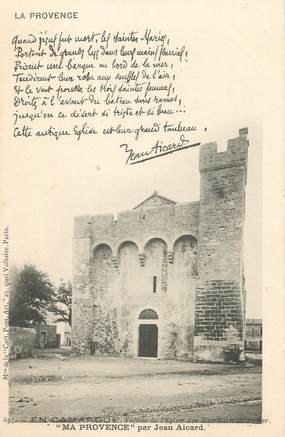 LA PROVENCE
Quand Jésus fut mort, les saintes Maries,
Portant de grands lys dans leurs mains fleuries,
Prirent une barque au bord de la mer,
Tendirent leur robe aux souffles de l'air,
Et le vent poussa les trois saintes femmes,
Droites à l'avant du bateau sans rames,
jusqu'en ce désert si triste et si bleu...
Cette antique Eglise est leur grand tombeau.
Jean Aicard
Mon de la "Cart. Post. Art." 25 quai Voltaire. Paris.
EN CAMARGUE. Façade de l'Église des Stes-Maries de la Mer.
"MA PROVENCE" par Jean Aicard.